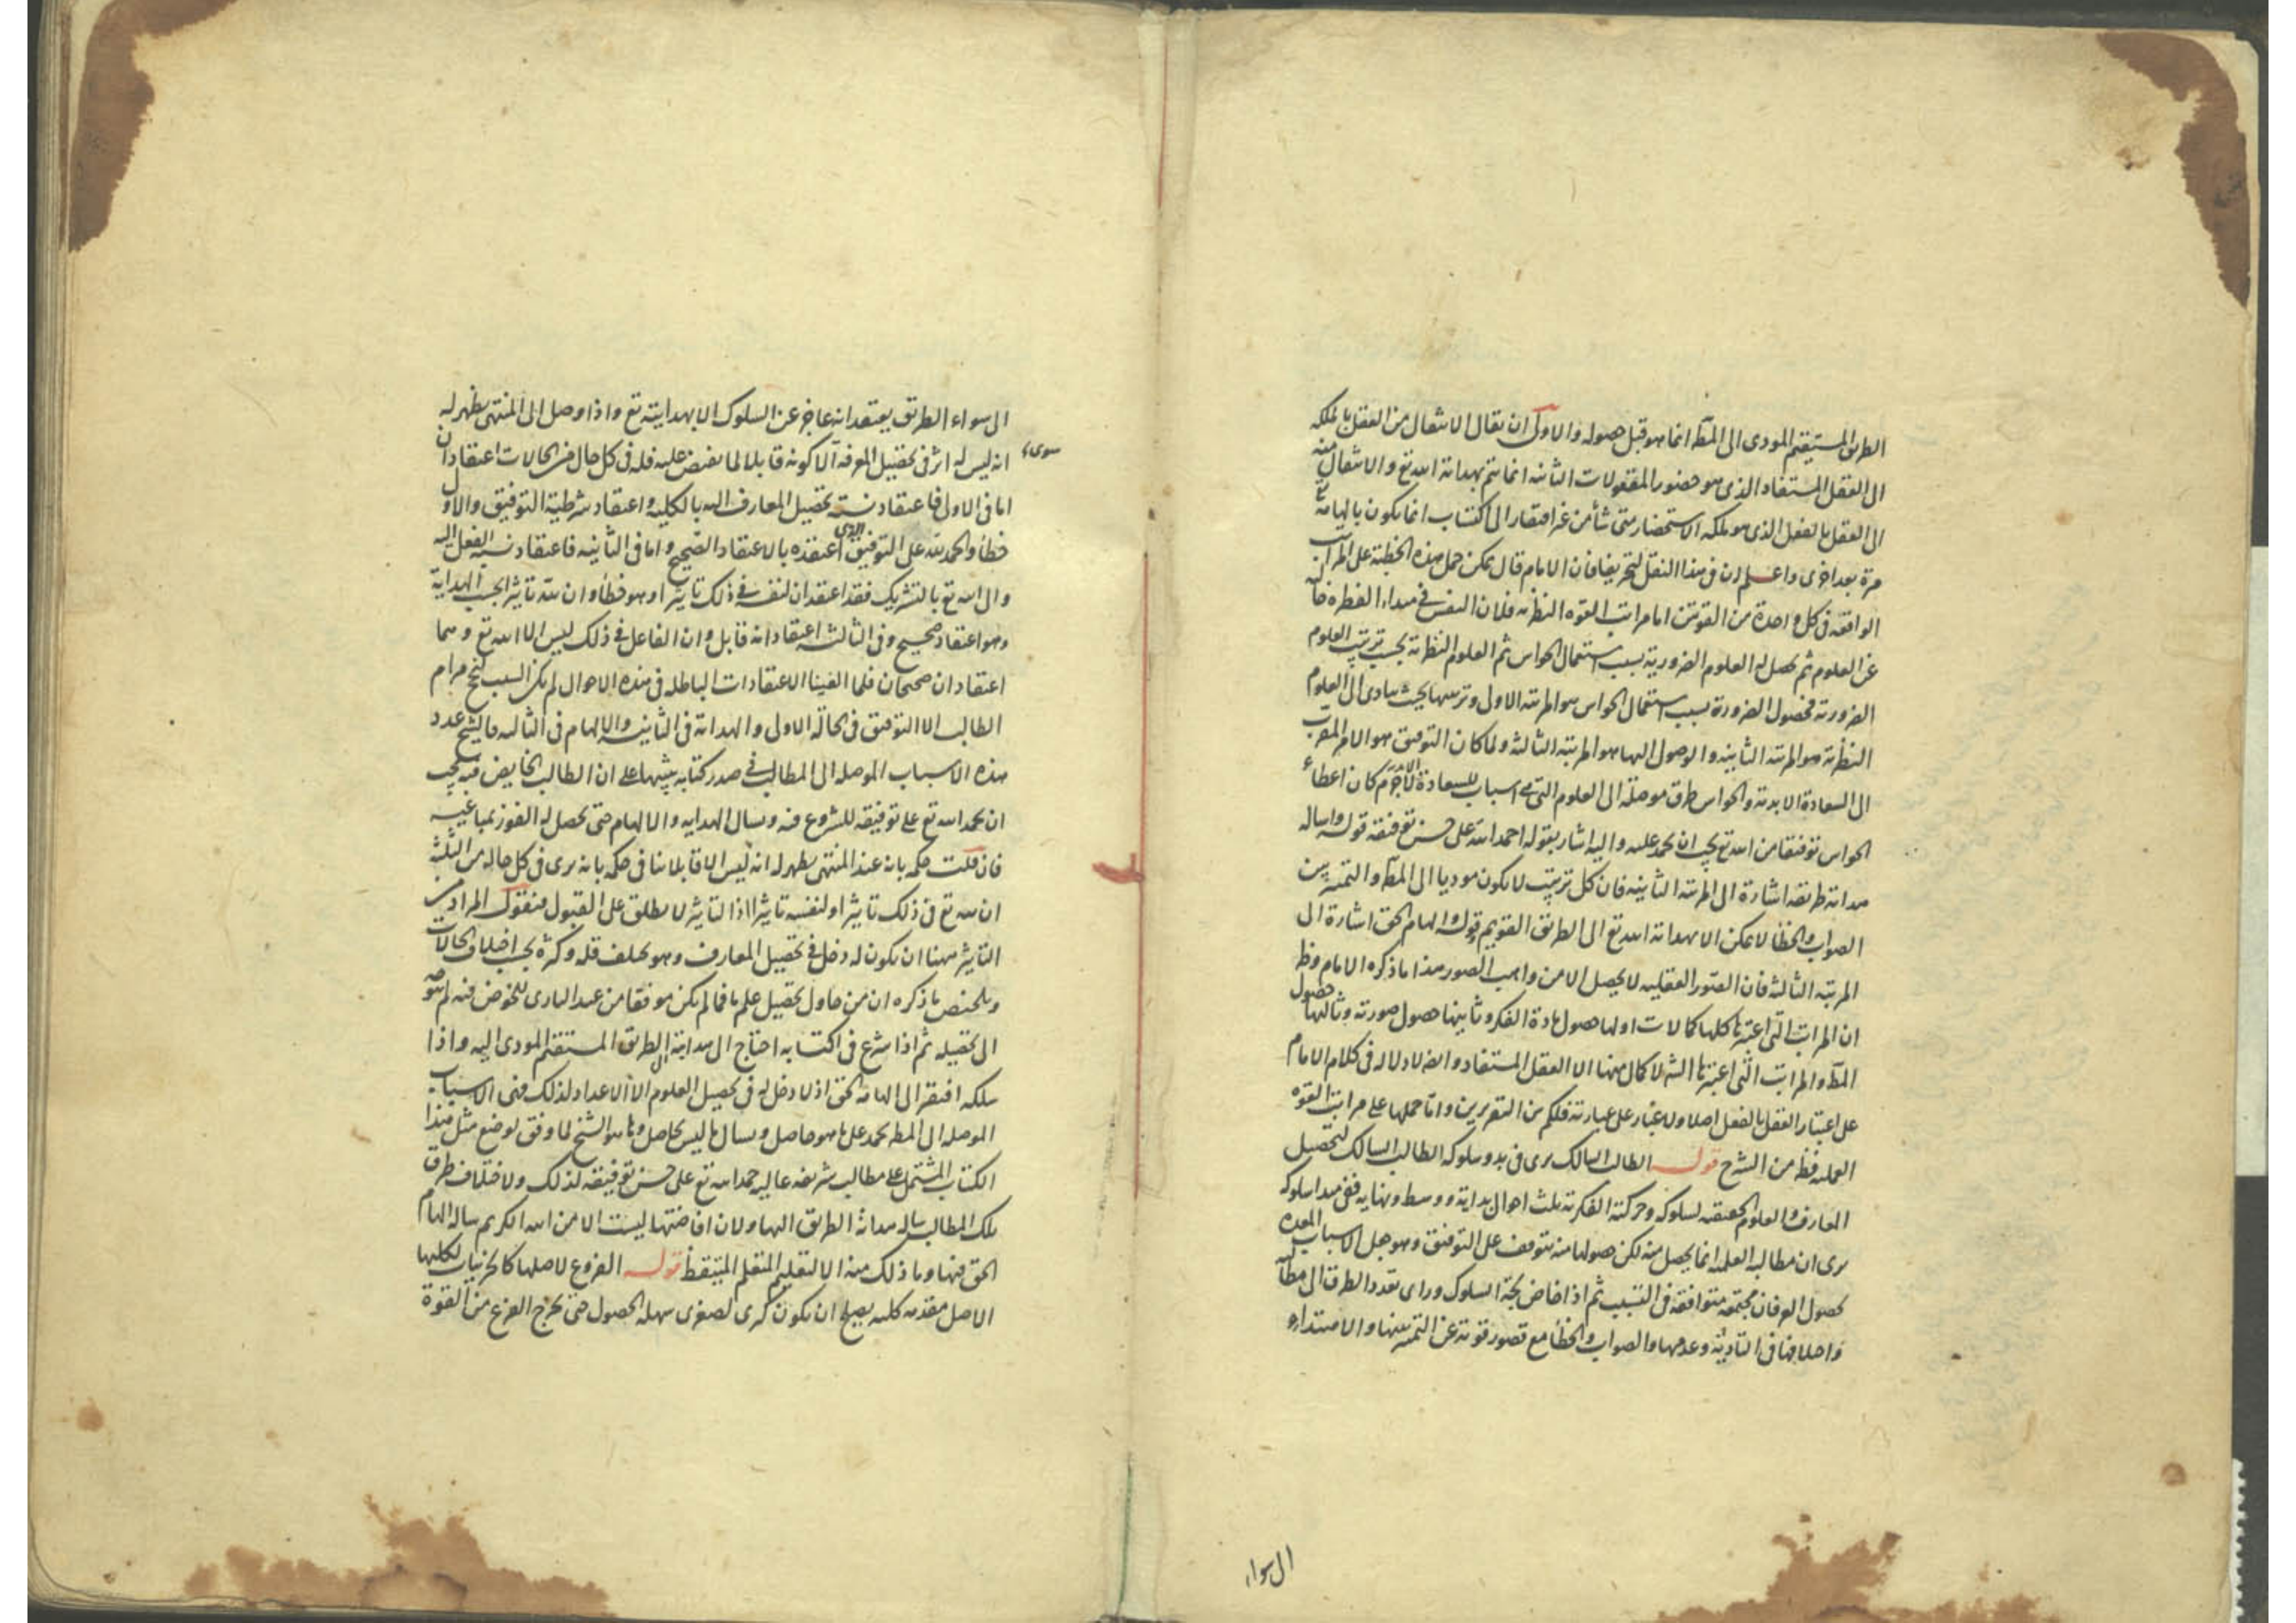 الطريق المستقيم المودى الى المط انما هو قبل حصوله والاولى ان يقال الانتقال من العقل بالملكه
الى العقل المستفاد الذى هو حضور المعقولات الثانيه انما يتم بهداية الله تع والانتقال منه
الى العقل بالفعل الذى هو ملكه الاستحضار متى شأ من غير افتقار الى اكتساب انما يكون بالهامه
مرة بعد اخرى واعلم ان فى هذا النقل لتحريفا فان الامام قال يمكن حمل هذه الخطبة على المراتب
الواقعه فى كل واحدة من القوتين اما مراتب القوه النظريه فلان النفس فى مبداء الفطره خاليه
عن العلوم ثم يحصل لها العلوم الضرورية بسبب استعمال الحواس ثم العلوم النظريه بحسب ترتيب العلوم
الضروريه فحصول الضرورة بسبب استعمال الحواس هو المرتبه الاولى وترتيبها بحيث يتادى الى العلوم
النظريه هو المرتبه الثانيه والوصول اليها هو المرتبه الثالثه ولما كان التوفيق هو الامر المقرب
الى السعادة الابديه والحواس طرق موصلة الى العلوم التى هى اسباب للسعادة لاجرم كان اعطاء
الحواس توفيقا من الله تع يجب ان يحمد عليه واليه اشار بقوله احمد الله على حسن توفيقه قوله واساله
هداية طريقه اشارة الى المرتبه الثانيه فان كل ترتيب لا يكون موديا الى المط والتميز بين
الصواب والخطا لا يمكن الا بهداية الله تع الى الطريق القويم وقوله والهام الحق اشارة الى
المرتبه الثالثه فان الصور العقليه لا يحصل الا من واهب الصور هذا ما ذكره الامام وظ
ان المراتب التى اعتبرها كلها كمالات اولها حصول مادة الفكر وثانيها حصول صورته وثالثها حصول
المط والمراتب التى اعتبرها الش لا كمال منها الا العقل المستفاد وايضا لا دلاله فى كلام الامام
على اعتبار العقل بالفعل اصلا ولا غبار على عبارته فلكم بين التقريرين واما حملها على مراتب القوه
العمليه فظ من الشرح قوله الطالب السالك يرى فى بدو سلوكه الطالب السالك لتحصيل
المعارف والعلوم الحقيقيه لسلوكه وحركته الفكريه ثلث احوال بداية ووسط ونهايه ففى مبدا سلوكه
يرى ان مطالبه العلميه انما يحصل منه لكن حصولها منه يتوقف على التوفيق وهو جعل الاسباب المعدة
لحصول العرفان مجتمعة متوافقة فى التسبب ثم اذا خاض لجة السلوك وراى تعدد الطرق الى مطالبه
واختلافها فى التادية وعدمها والصواب والخطأ مع قصور قوته عن التميز بينها والاهتداء
الى سواء
الى سواء الطريق يعتقد انه عاجز عن السلوك الا بهدايته تع واذا وصل الى المنتهى يظهر له
انه ليس له اثر فى تحصيل المعرفه الا كونه قابلا لما يفيض عليه فله فى كل حال من الحالات اعتقادان
سوى
اما فى الاولى فاعتقاد نسبة تحصيل المعارف اليه بالكليه واعتقاد شرطية التوفيق والاول
خطأ والحمد لله على التوفيق الذى اعتقده بالاعتقاد الصحيح واما فى الثانيه فاعتقاد نسبة الفعل اليه
والى الله تع بالتشريك فقد اعتقد ان لنفسه فى ذلك تاثيرا وهو خطأ وان لله تاثيرا بحسب الهداية
وهو اعتقاد صحيح وفى الثالثه اعتقاد انه قابل وان الفاعل فى ذلك ليس الا الله تع وهما
اعتقادان صحيحان فلما الغينا الاعتقادات الباطله فى هذه الاحوال لم يكن السبب لنجح مرام
الطالب الا التوفيق فى الحالة الاولى والهداية فى الثانيه والالهام فى الثالثه فالشيخ عدد
هذه الاسباب الموصله الى المطالب فى صدر كتابه تنبيها على ان الطالب الخايض فيه يجب
ان يحمد الله تع على توفيقه للشروع فيه ويسال الهدايه والالهام حتى يحصل له الفوز بمباغيه
فان قلت حكمه بانه عند المنتهى يظهر له انه ليس الا قابلا ينافى حكمه بانه يرى فى كل حاله من الثلثه
ان لله تع فى ذلك تاثيرا ولنفسه تاثيرا اذ التاثير لا يطلق على القبول فنقول المراد من
التاثير ههنا ان يكون له دخل فى تحصيل المعارف وهو يختلف قله وكثرة بحسب اختلاف الحالات
وتلخيص ما ذكره ان من حاول تحصيل علم ما فما لم يكن موفقا من عند البارى للخوض فيه لم يتوجه
الى تحصيله ثم اذا شرع فى اكتسابه احتاج الى هداية الى الطريق المستقيم المودى اليه واذا
سلكه افتقر الى الهامه الحق اذ لا دخل له فى تحصيل العلوم الا الاعداد لذلك فهى الاسباب
الموصله الى المط يحمد على ما هو حاصل ويسال ما ليس بحاصل وها هو الشيخ لما وفق لوضع مثل هذا
الكتاب المشتمل على مطالب شريفه عاليه حمد الله تع على حسن توفيقه لذلك ولاختلاف طرق
تلك المطالب ساله هداية الطريق اليها ولان افاضتها ليست الا من الله الكريم ساله الهام
الحق فيها وما ذلك منه الا لتعليم المتعلم المتيقظ قوله الفروع لاصلها كالجزئيات لكليها
الاصل مقدمه كليه يصلح ان يكون كبرى لصغرى سهله الحصول حتى يخرج الفرع من القوة